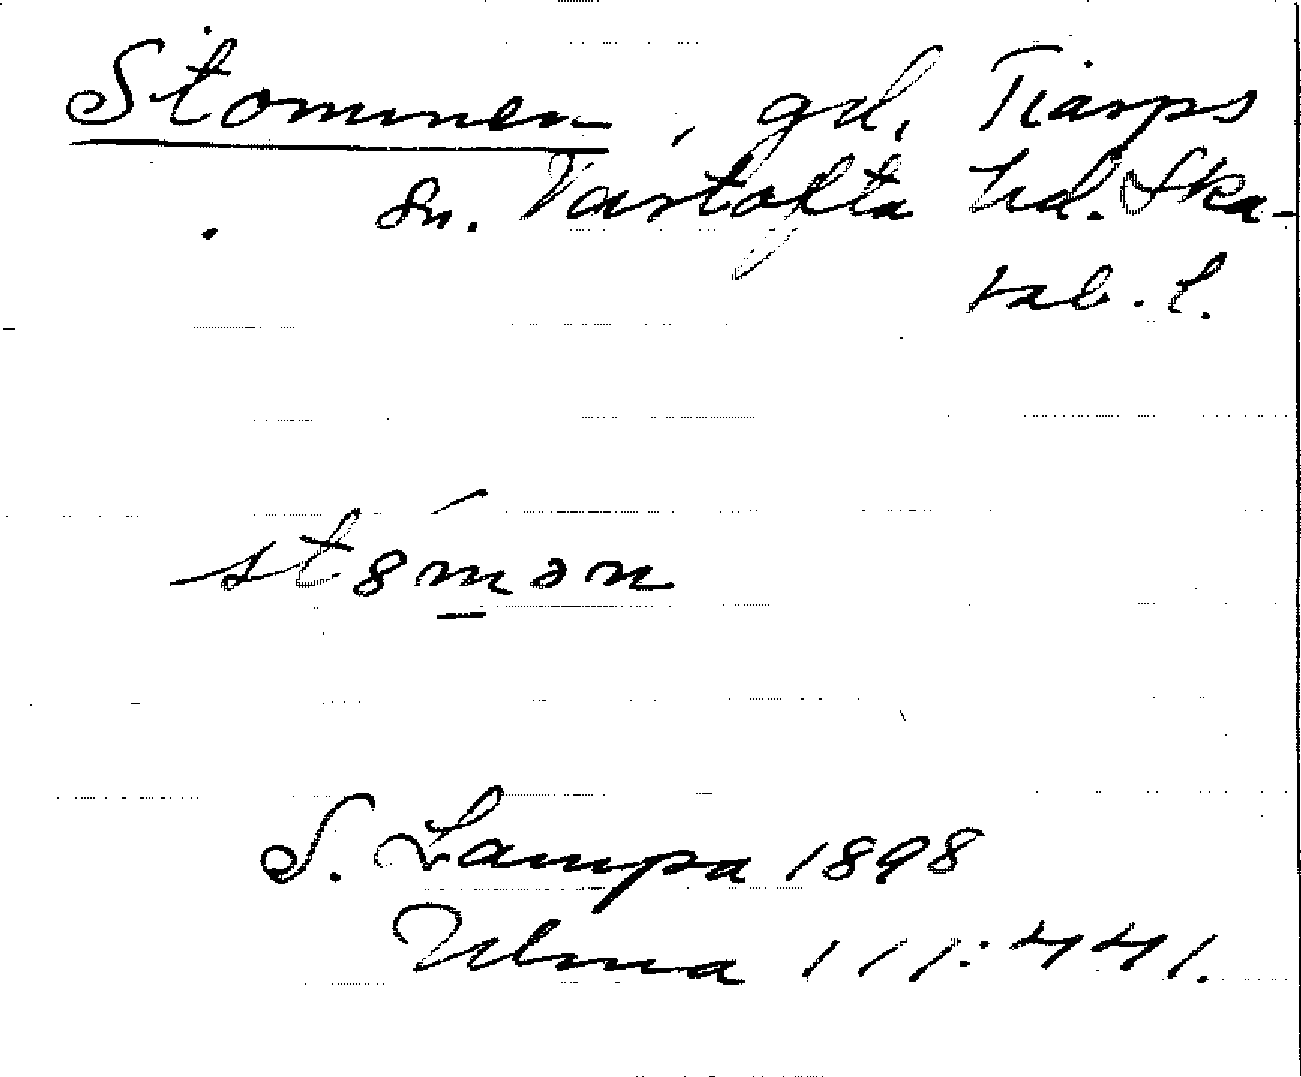 Stommen, gd, Tiarps
sn. Vartofta hd. Ska-
rab. l.
st8́m̲ən
S. Lampa 1898
Ulma 111:441.